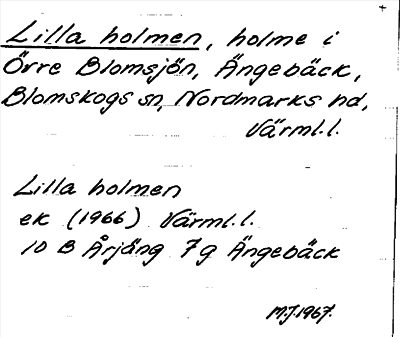 Lilla holmen, holme i
Övre Blomsjön, Ängebäck,
Blomskogs sn, Nordmarks hd,
Värml.l.
Lilla holmen
ek (1966) Värml.l.
10 B Årjäng 7g Ängebäck
M.J.1967.